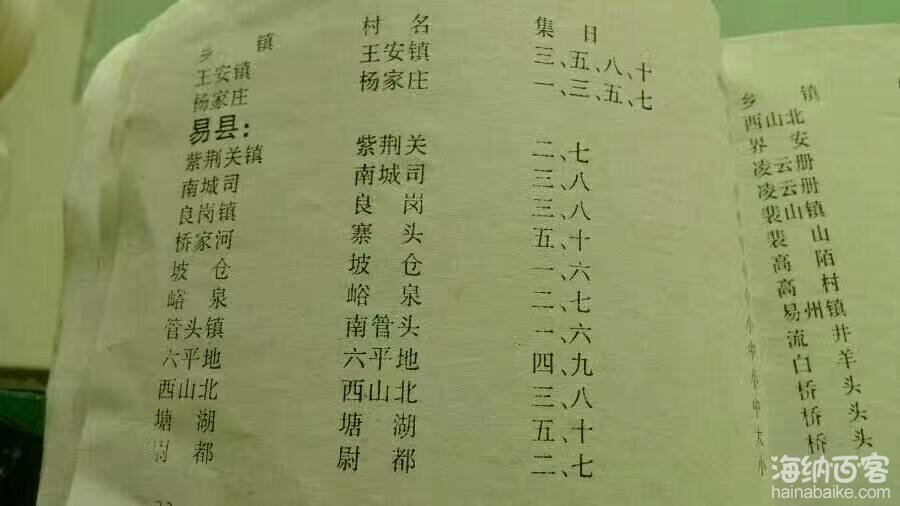 乡 镇 村 名 集 日
王安镇 王安镇 三、五、八、十
杨家庄 杨家庄 一、三、五、七
易县：
紫荆关镇 紫荆关 二、七
南城司 南城司 三、八
良岗镇 良 岗 三、八
桥家河 寨 头 五、十
坡 仓 坡 仓 一、六
峪 泉 峪 泉 二、七
管头镇 南管头 一、六
六平地 六平地 四、九
西山北 西山北 三、八
塘 湖 塘 湖 五、十
尉 都 尉 都 二、七
乡 镇
西山北
界 安
凌云册
凌云册
裴山镇
裴 山
高 陌
高 村
易州镇
流 井
白 羊
桥 头
桥 头
桥 头
小
小
中
小
中
大
小
海纳百客
hainabaike.com